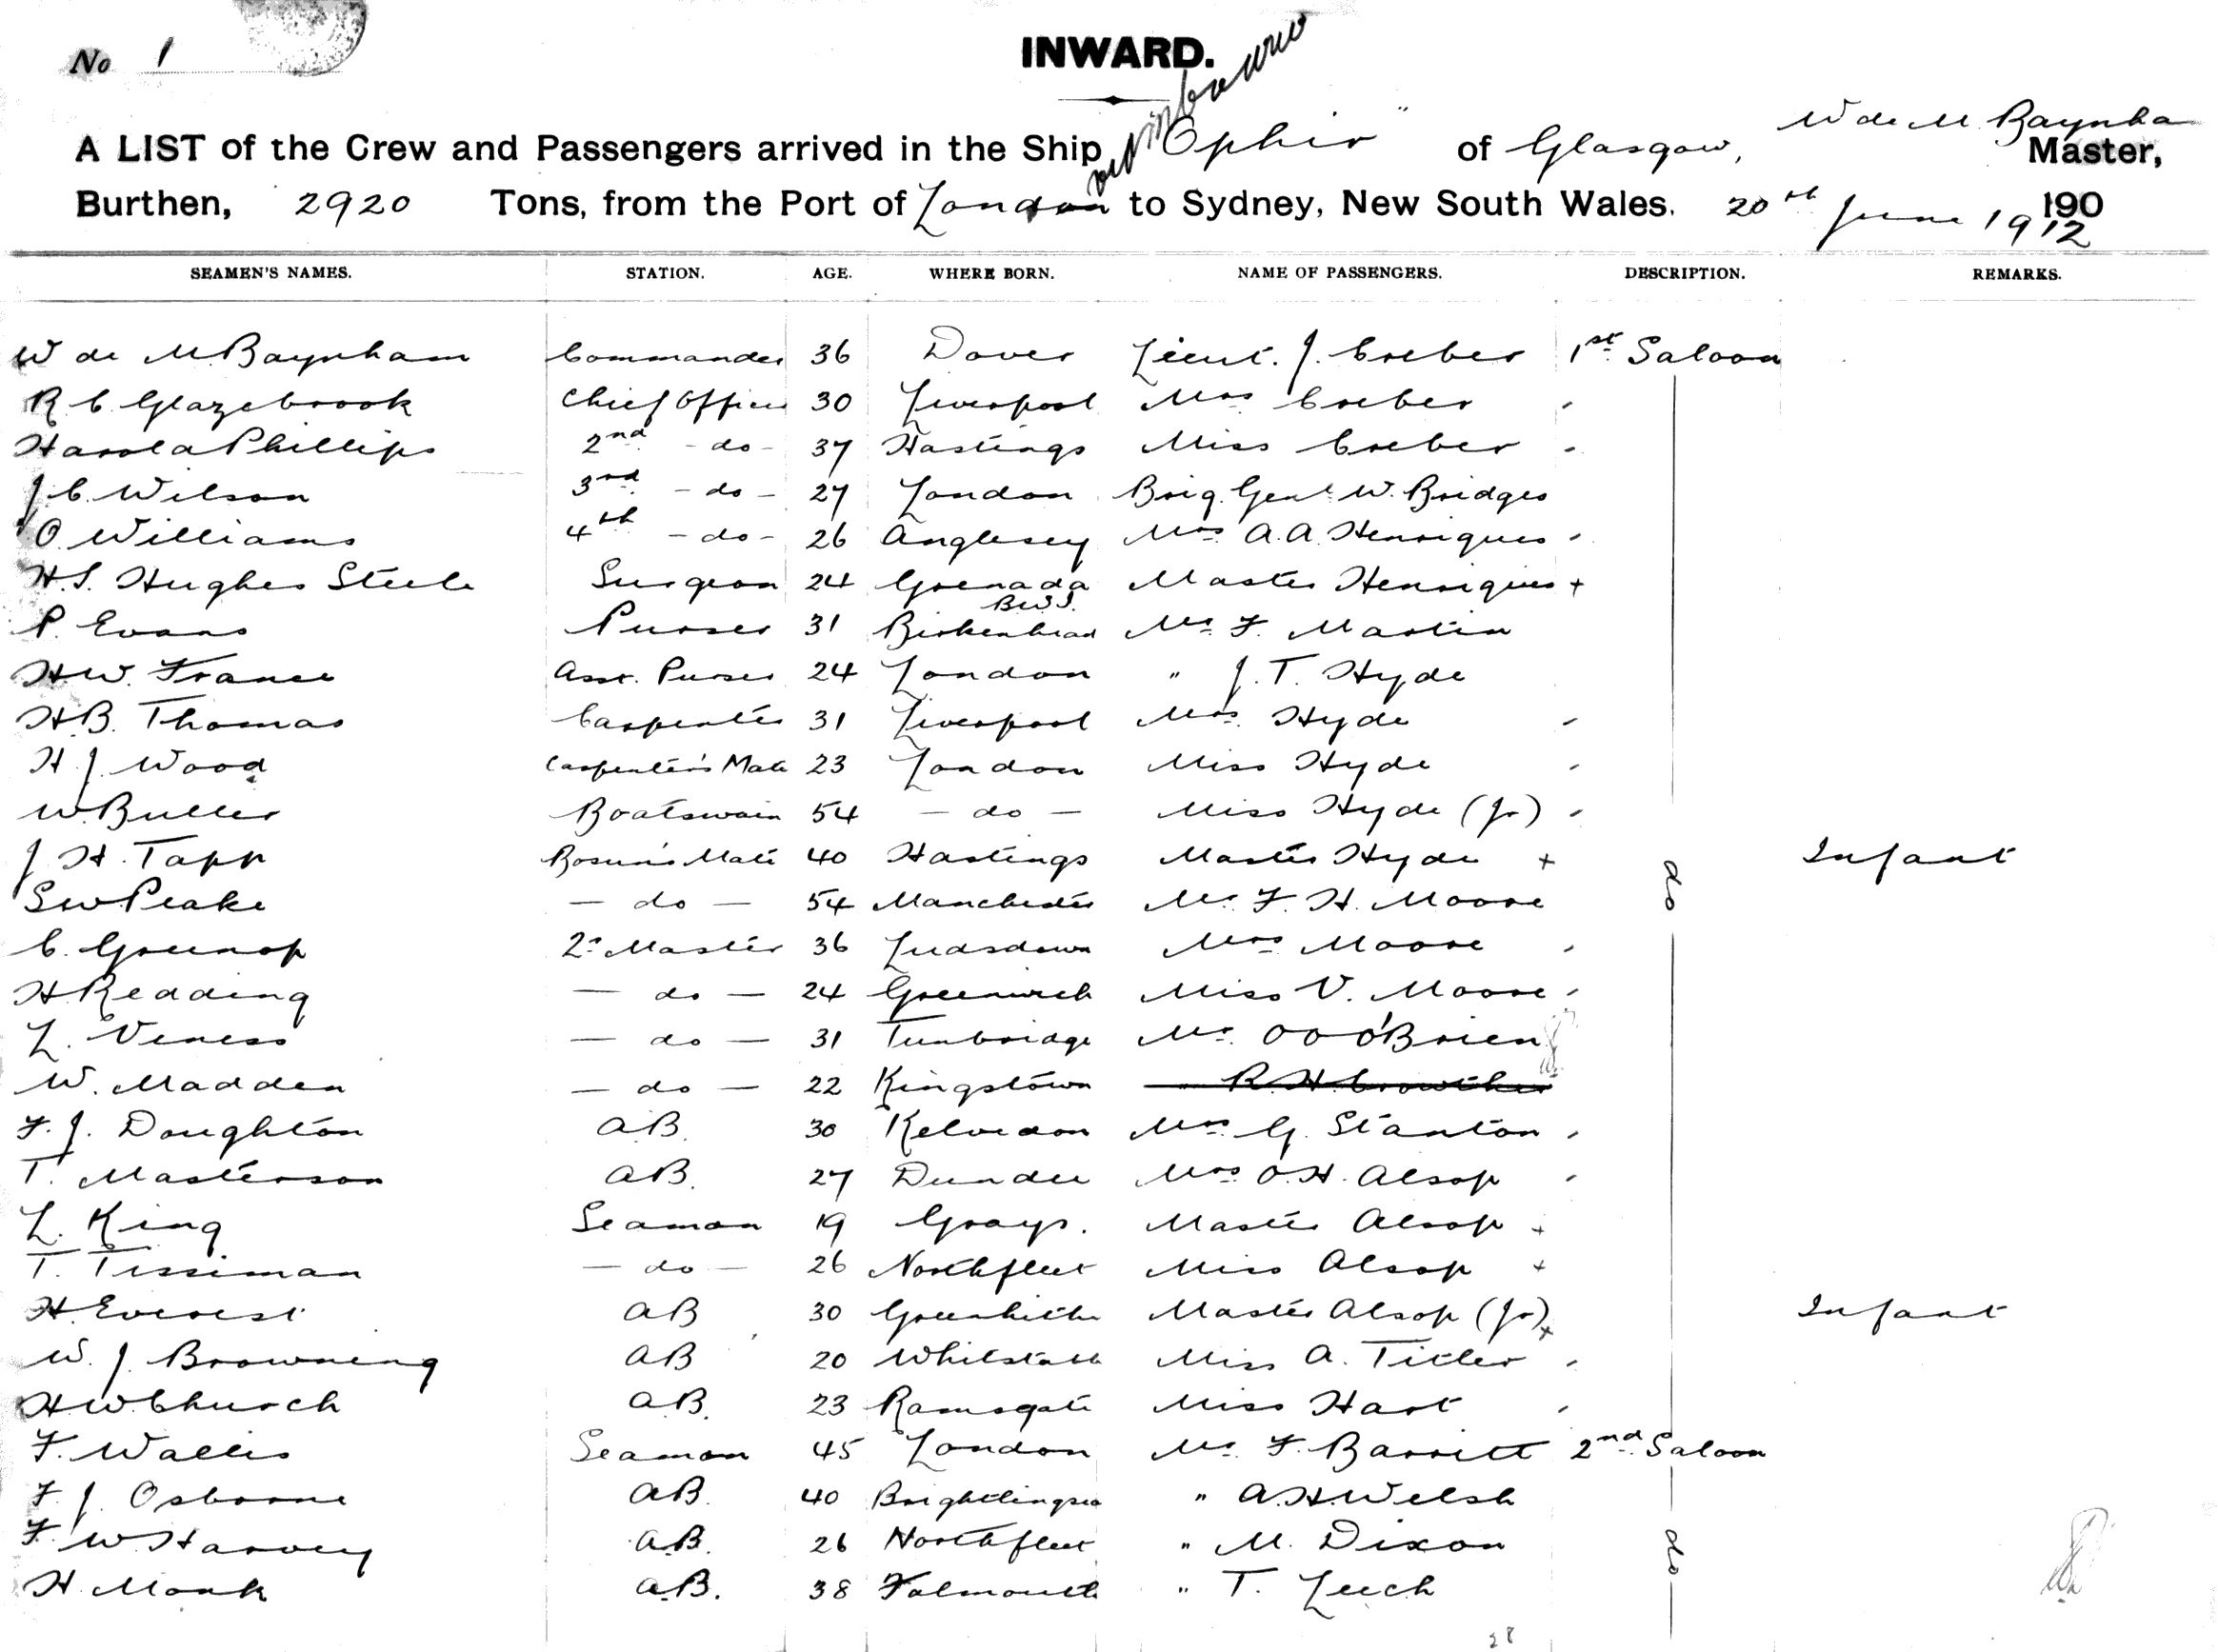 No 1
INWARD.
A LIST of the Crew and Passengers arrived in the Ship "Ophir" of Glasgow, W de M Baynha Master,
Burthen, 2920 Tons, from the Port of London via Melbourne to Sydney, New South Wales. 20th June 1912 190
SEAMEN'S NAMES. STATION. AGE. WHERE BORN. NAME OF PASSENGERS. DESCRIPTION. REMARKS.
W de M Baynham Commander 36 Dover Lieut. J. Creber 1st Saloon
R C Glazebrook Chief Officer 30 Liverpool Mrs Creber
Harold Phillips 2nd - do - 37 Hastings Miss Creber
J. C. Wilson 3rd - do - 27 London Brig. Genl W. Bridges
O. Williams 4th - do - 26 Anglesey Mrs A. A. Henriques
H. S. Hughes Steele Surgeon 24 Grenada BWI. Master Henriques +
P. Evans Purser 31 Birkenhead Mr F. Martin
H W. France Asst. Purser 24 London " J. T. Hyde
H. B. Thomas Carpenter 31 Liverpool Mrs. Hyde
H J Wood Carpenter's Mate 23 London Miss Hyde
W. Buller Boatswain 54 - do - Miss Hyde (Jr)
J H. Tapp Bosun's Mate 40 Hastings Master Hyde + do Infant
S W Peake - do - 54 Manchester Mr. F. H. Moore
C. Greenop 2r Master 36 Ludsdown Mrs Moore
H Redding - do - 24 Greenwich Miss V. Moore
L. Veness - do - 31 Tunbridge Mr. O O O'Brien
W. Madden - do - 22 Kingstown " R. H. Crowther
F. J. Doughton AB. 30 Kelvedon Mrs G. Stanton
T. Masterson AB. 27 Dundee Mrs O. H. Alsop
L. King Seaman 19 Grays. Master Alsop +
T. Tissiman - do - 26 Northfleet Miss Alsop +
H. Everest AB 30 Greenhithe Master Alsop (Jr) + Infant
W. J. Browning AB 20 Whitstable Miss A. Titler
H W Church AB. 23 Ramsgate Miss Hart
F. Wallis Seaman 45 London Mr. F. Barritt 2nd Saloon
F. J. Osborne AB. 40 Brightlingsea " A. H. Welsh
F. W Harvey AB. 26 Northfleet " M. Dixon do
H Monk AB. 38 Falmouth " T. Leech
28